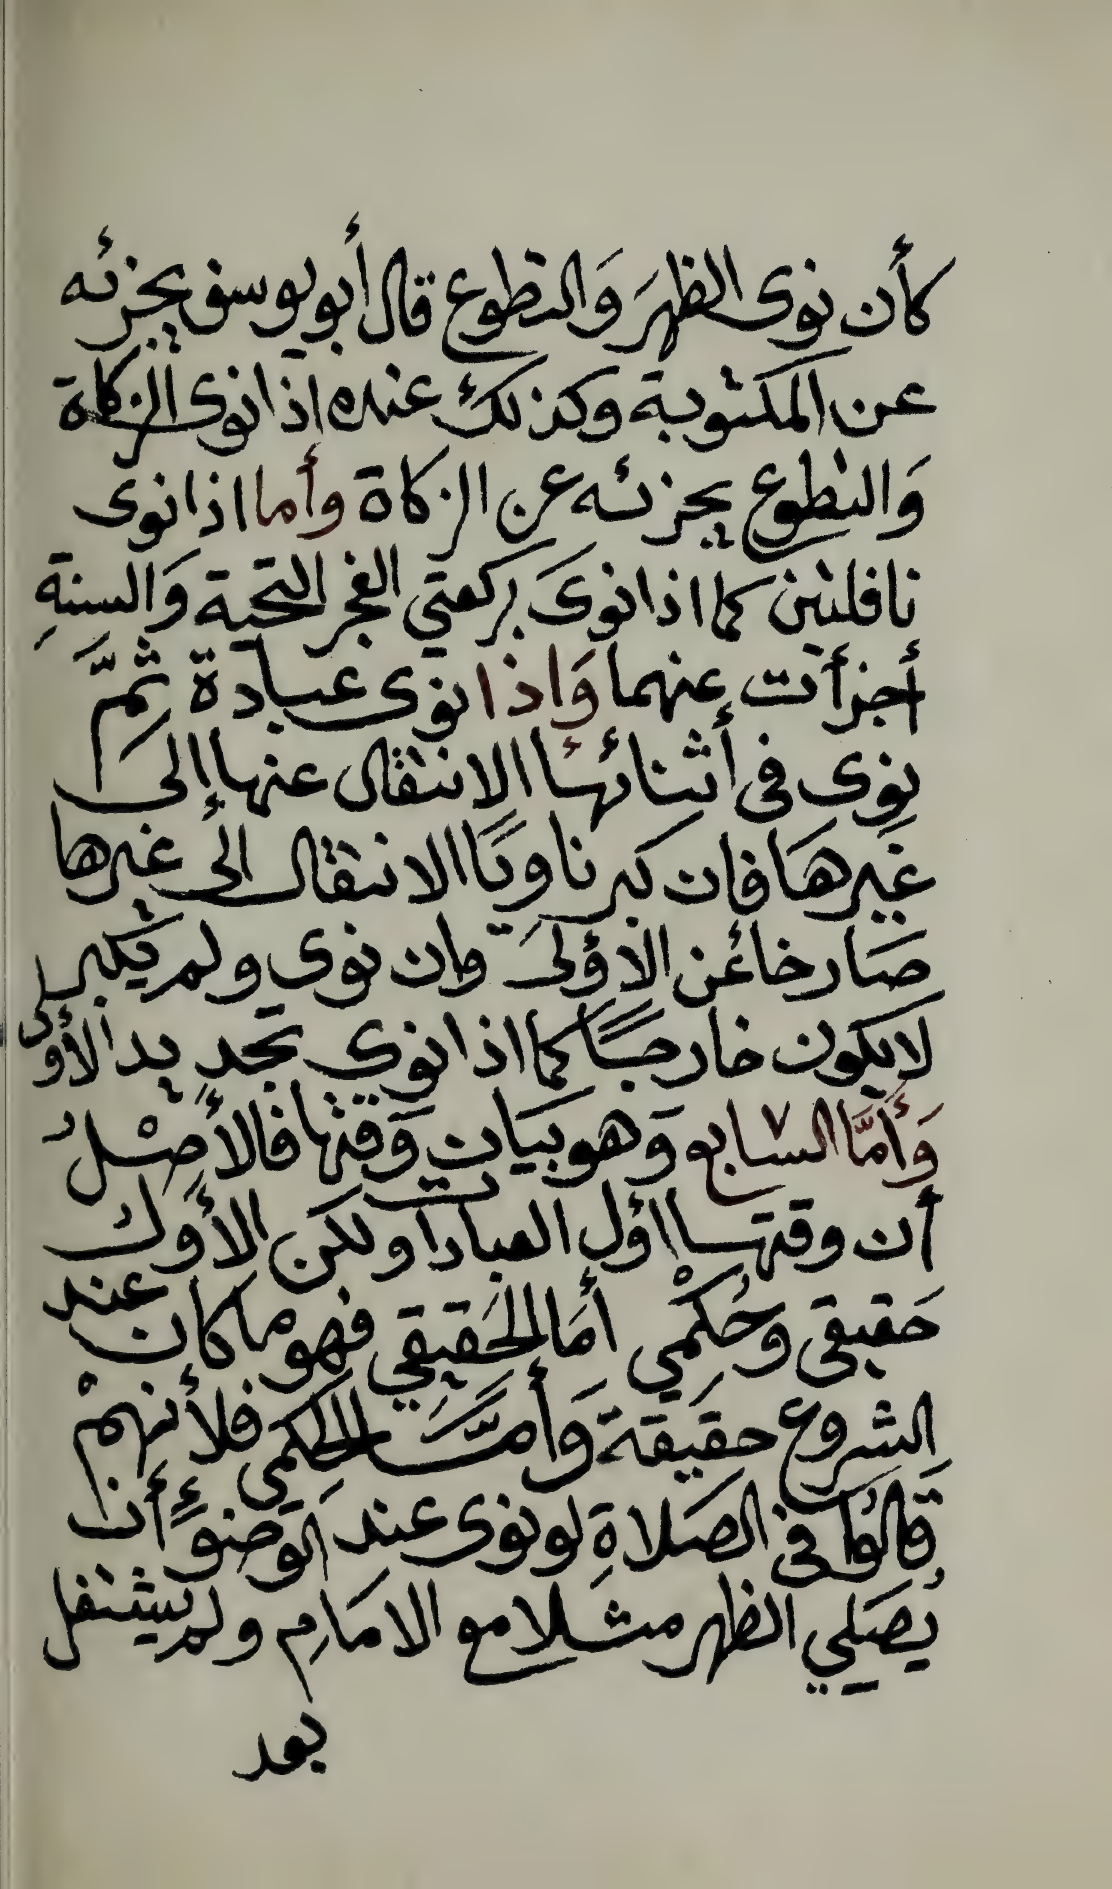 كأن نوى الظهرَ وَالتطوع قال أبو يوسف يجزئه
عن المكتوبة وكذلك عنده اذا نوى الزكاة
وَالتطوع يجزئه عن الزكاة وأما اذا نوى
نافلتين كما اذا نوىَ بركعتي الفجر التحية وَالسنةِ
أجزأت عنهما وَاذا نوى عبادة ثمَّ
نوى فى أثنائها الانتقال عنها إلى
غيرهَا فان كبر ناويًا الانتقال الى غيرها
صَار خارجًا عن الاؤلىَ وان نوى ولم يكبر
لا يكون خارجًا كما اذا نوي تجديد الأولى
وَأمَّا السابع وَهو بيَان وَقتها فالأصْلُ
أن وقتها اؤل العبادات ولكن الأوَل
حَقيقى وحُكْمي أمَا الحَقِيقي فهو ما كان عند
الشروع حقيقة وَأمَّا الحِكمي فلأنهمْ
قَالوُا فى الصَلاةِ لو نوى عند الوَضوءِ أن
يُصَلي الظهر مثَلا مع الامَامِ ولم يشتغل
بعد